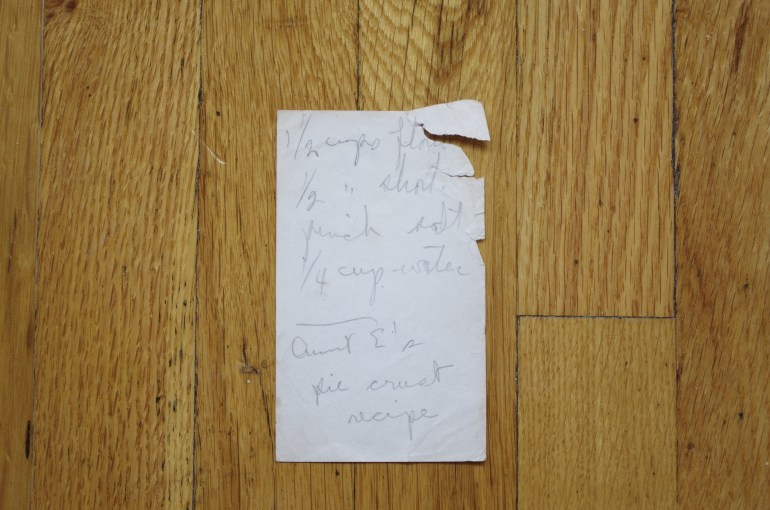 1 1/2 cups flour
1/2 " short.
pinch salt
1/4 cup water
Aunt E's
pie crust
recipe